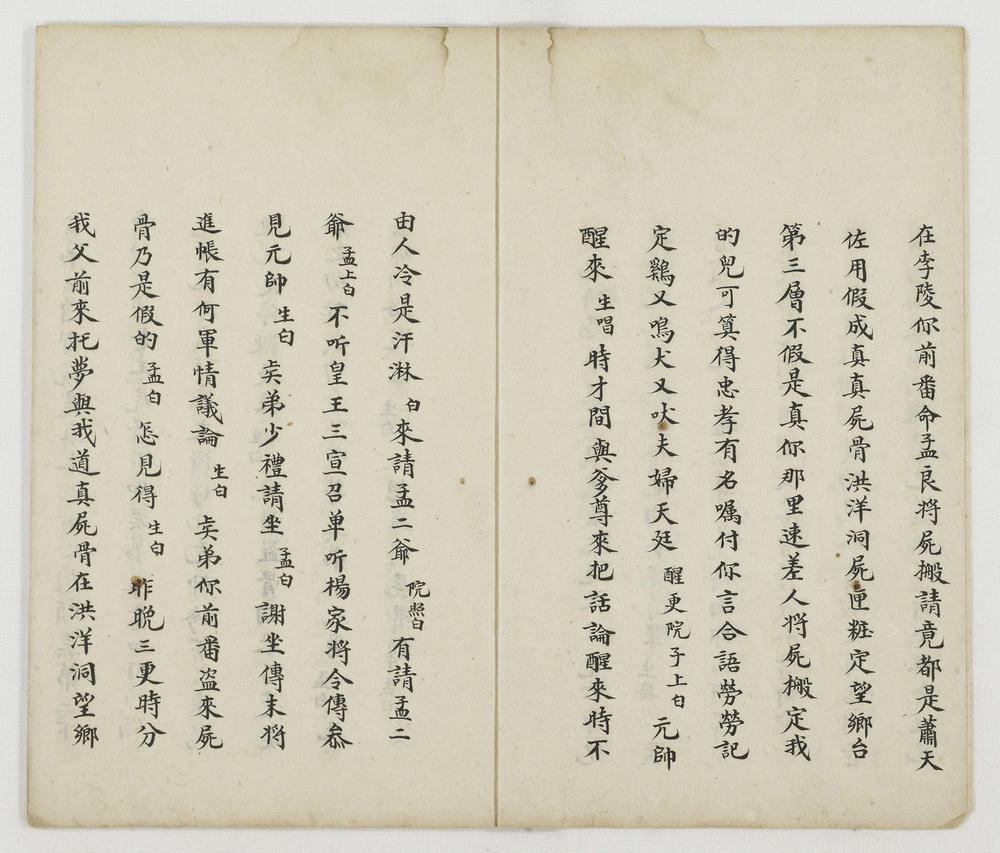 在李陵你前番命孟良将屍搬請竟都是蕭天
佐用假成真真屍骨洪洋洞屍匣粧定望鄉台
第三層不假是真你那里速差人将屍搬定我
的兒可算得忠孝有名嘱付你言合語勞勞記
定鷄又鳴犬又吠夫婦天廷 醒更院子上白 元帥
醒來 生唱 時才間與爹尊來把話論醒來時不
由人冷是汗淋 白 來請孟二爺 院照白 有請孟二
爺 孟上白 不听皇王三宣召单听楊家将令傳叅
見元帥 生白 矣弟少禮請坐 孟白 謝坐傳末将
進帳有何軍情議論 生白 矣弟你前番盗來屍
骨乃是假的 孟白 怎見得 生白 昨晚三更時分
我父前來托夢與我道真屍骨在洪洋洞望鄉